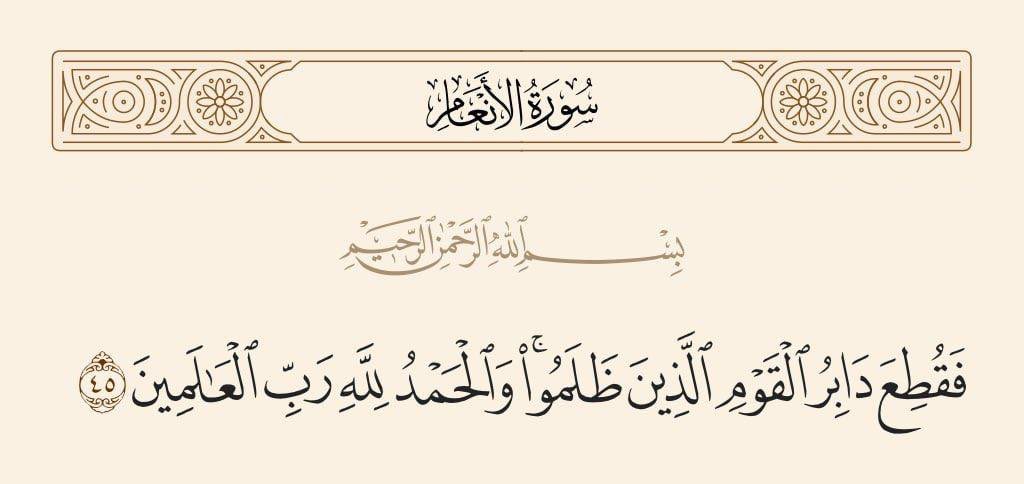 سُورَةُ الأَنْعَامِ
بِسْمِ ٱللَّهِ ٱلرَّحْمَٰنِ ٱلرَّحِيمِ
فَقُطِعَ دَابِرُ ٱلْقَوْمِ ٱلَّذِينَ ظَلَمُوا۟ ۚ وَٱلْحَمْدُ لِلَّهِ رَبِّ ٱلْعَـٰلَمِينَ ٤٥